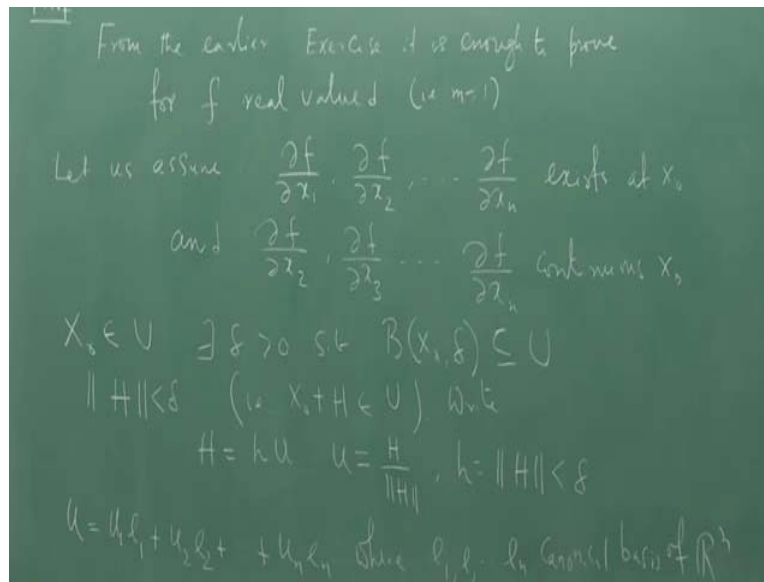 From the earlier Exercise it is enough to prove
for f real valued (i.e m=1)
Let us assume ∂f/∂x₁, ∂f/∂x₂, ... ∂f/∂xₙ exists at X₀
and ∂f/∂x₂, ∂f/∂x₃ ... ∂f/∂xₙ continuous X₀
X₀ ∈ U ∃ δ > 0 s.t B(X₀, δ) ⊆ U
‖H‖ < δ (i.e. X₀ + H ∈ U) write
H = hu u = H/‖H‖, h = ‖H‖ < δ
u = u₁e₁ + u₂e₂ + + uₙeₙ where e₁, e₂ .. eₙ canonical basis of ℝⁿ